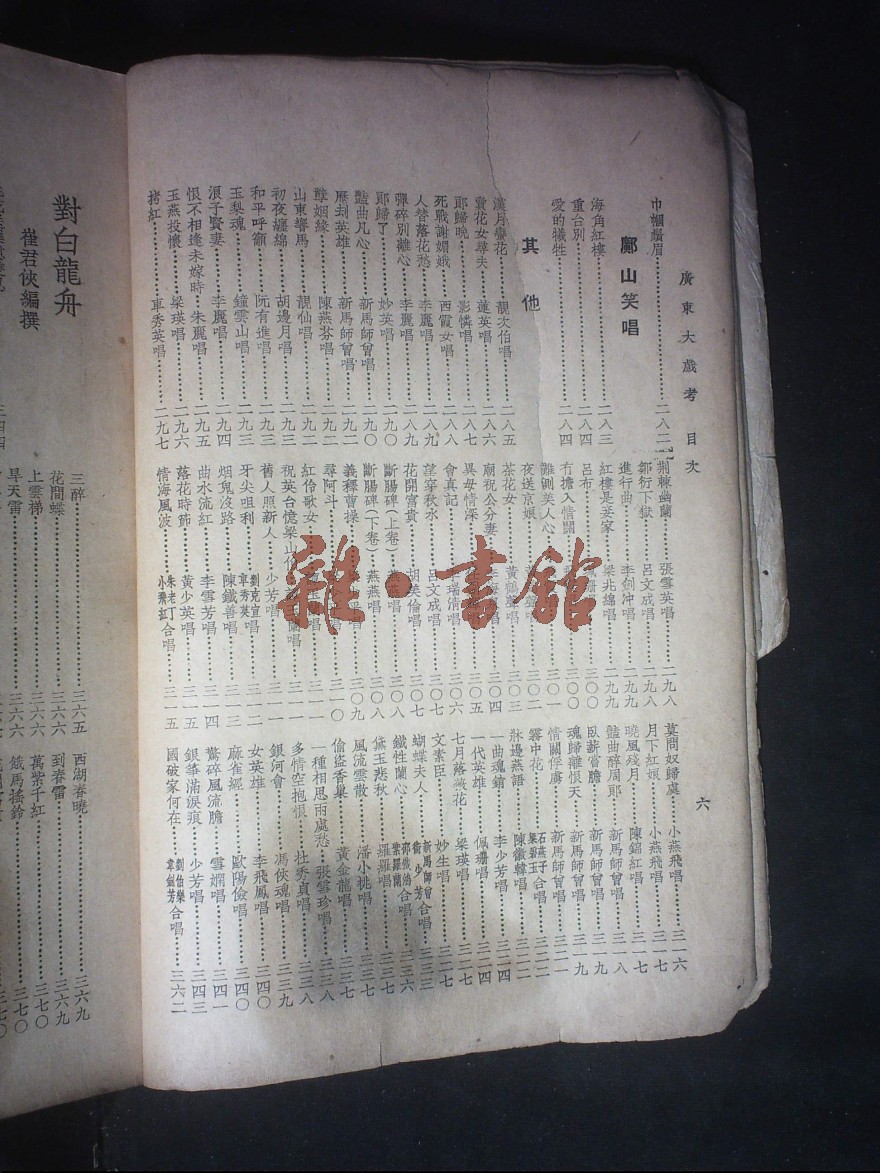 廣東大戲考 目次
六
巾幗鬚眉……二八二
鄺山笑唱
海角紅樓……二八三
重台別
愛的犧牲……二八四
其他
漢月蠻花 靚次伯唱……二八五
賣花女尋夫 蓮英唱……二八六
郞歸晚 影憐唱……二八七
死戰謝嫺娥 西霞女唱……二八八
人替落花愁 李麗唱……二八九
彈碎別離心 李麗唱……二八九
郞歸了 妙英唱……二九〇
豔曲凡心 新馬師曾唱……二九〇
歷刦英雄 新馬師曾唱……二九一
孽姻緣 陳燕芬唱……二九二
山東響馬 靚仙唱……二九二
初夜纏綿 胡邊月唱……二九三
和平呼籲 阮有進唱……二九三
玉梨魂 鐘雲山唱……二九三
浪子賢妻 李麗唱……二九四
恨不相逢未嫁時 朱麗唱……二九五
玉燕投懷 梁瑛唱……二九六
拷紅 車秀英唱……二九七
荆棘幽蘭 張雪英唱……二九八
鄒衍下獄 呂文成唱……二九八
進行曲 李劍冲唱……二九九
紅樓是妾家 梁兆綿唱……二九九
呂布……三〇〇
冇擔入情關……三〇〇
難測美人心……三〇一
夜送京娘……三〇二
茶花女 黃鶴聲唱……三〇三
廟祝公分妻……三〇四
異母情深……三〇五
會眞記 李瑞清唱……三〇六
望穿秋水 呂文成唱……三〇七
花開富貴 胡美倫唱……三〇七
斷腸碑(上卷) 燕燕唱……三〇八
斷腸碑(下卷) 燕燕唱……三〇八
義釋曹操……三〇九
尋阿斗……三一〇
紅伶歌女……三一一
祝英台憶梁山伯
舊人照新人 少芳唱……三一一
牙尖咀利 劉克宣 車秀英唱……三一二
烟鬼沒路 陳鐵善唱……三一三
曲水流紅 李雪芳唱……三一四
落花時節 黃少英唱……三一五
情海風波 朱老丁 小飛紅合唱……三一五
莫問奴歸處 小燕飛唱……三一六
月下紅娘 小燕飛唱……三一七
曉風殘月 陳錦紅唱……三一七
豔曲醉周郞 新馬師曾唱……三一八
臥薪嘗膽 新馬師曾唱……三一九
魂歸離恨天 新馬師曾唱……三一九
情關俘虜 新馬師曾唱
霧中花 石燕子 梁碧玉合唱……三二二
牀邊燕語 陳徽韓唱……三二二
一曲魂銷 李少芳唱……三二四
一代英雄 佩珊唱……三二四
七月落薇花 梁瑛唱……三二七
文素臣 妙生唱
蝴蝶夫人 新馬師曾 衞少芳合唱……三三三
鐵性蘭心 紫羅蘭合唱
黛玉悲秋 羅麗唱……三三七
風流雲散 潘小桃唱……三三七
偷盜香巢 黃金龍唱……三三七
一種相思兩處愁 張雪珍唱……三三八
多情空抱恨 杜秀貞唱……三三八
銀河會 馮俠魂唱……三三九
女英雄 李飛鳳唱……三四〇
麻雀經 歐陽儉唱……三四〇
驚碎風流膽 雪嫻唱……三四一
銀箏滿淚痕 少芳唱……三四三
國破家何在 劉伯樂 韋劍芳合唱……三六二
對白龍舟
崔君俠編撰
三醉……三六五
花間蝶……三六六
上雲梯……三六六
旱天雷……三六六
西湖春曉……三六九
到春雷……三六九
萬紫千紅……三七〇
鐵馬搖鈴……三七〇
雜·書館